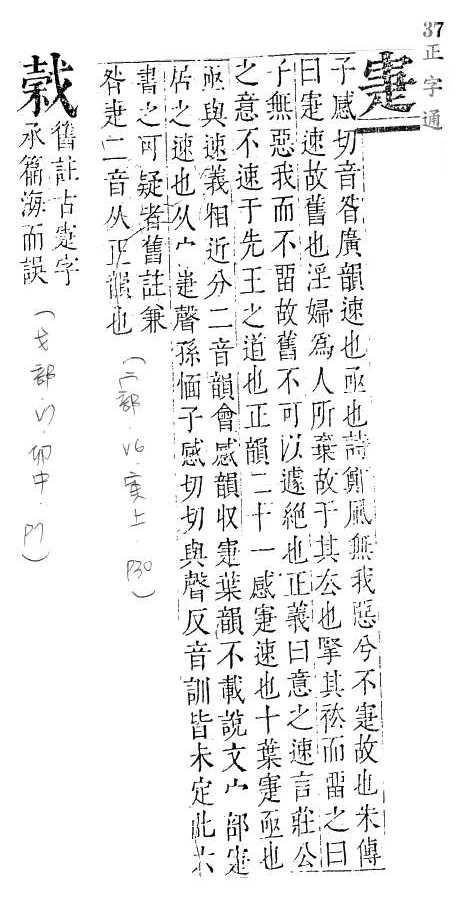 37 正字通
寁
子感切音昝廣韻速也亟也詩鄭風無我惡兮不寁故也朱傳
曰寁速故舊也淫婦為人所棄故于其厺也掔其袪而畱之曰
子無惡我而不畱故舊不可以遽絶也正義曰意之速言莊公
之意不速于先王之道也正韻二十一感寁速也十葉寁亟也
亟與速義相近分二音韻會感韻収寁葉韻不載說文宀部寁
居之速也从宀疌聲孫愐子感切切與聲反音訓皆未定此六
書之可疑者舊註兼
昝疌二音从正韻也
(宀部．V6．寅上．P30)
舊註古寁字
承篇海而誤
(戈部．V7．卯中．P7)